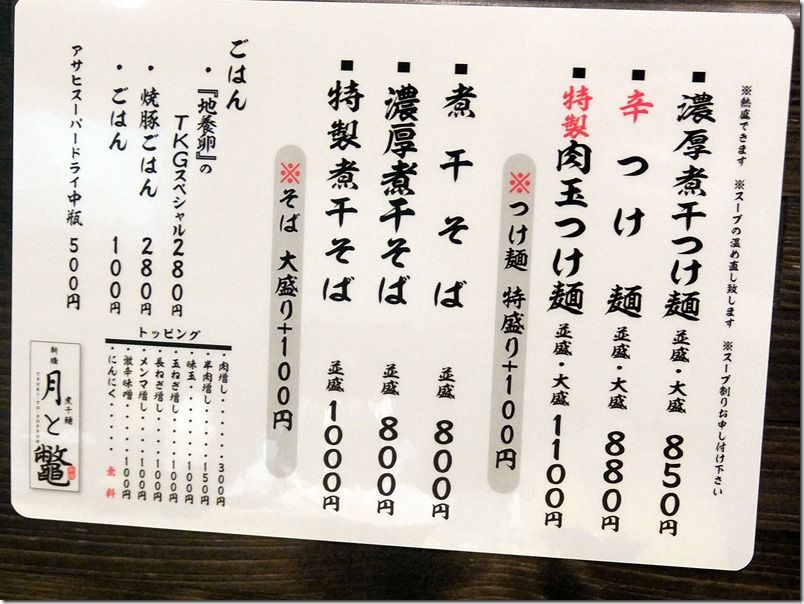 ※熱盛できます ※スープの温め直し致します ※スープ割りお申し付け下さい
■濃厚煮干つけ麺 並盛・大盛 850円
■辛つけ麺 並盛・大盛 880円
■特製肉玉つけ麺 並盛・大盛 1100円
※つけ麺 特盛り+100円
■煮干そば 並盛 800円
■濃厚煮干そば 並盛 800円
■特製煮干そば 並盛 1000円
※そば 大盛り+100円
ごはん
・『地養卵』の
TKGスペシャル280円
・焼豚ごはん 280円
・ごはん 100円
アサヒスーパードライ中瓶 500円
トッピング
・肉増し・・・・300円
・半肉増し・・・150円
・味玉・・・・・100円
・玉ねぎ増し・・100円
・長ねぎ増し・・100円
・メンマ増し・・100円
・激辛味噌・・・100円
・にんにく・・・・無料
新橋
煮干麺
月と鼈